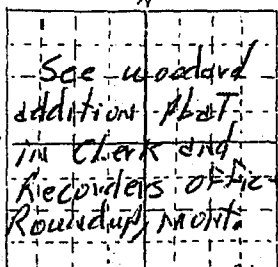 See woodard
addition plat
in Clerk and
Recorders offic
Roundup, Mont.